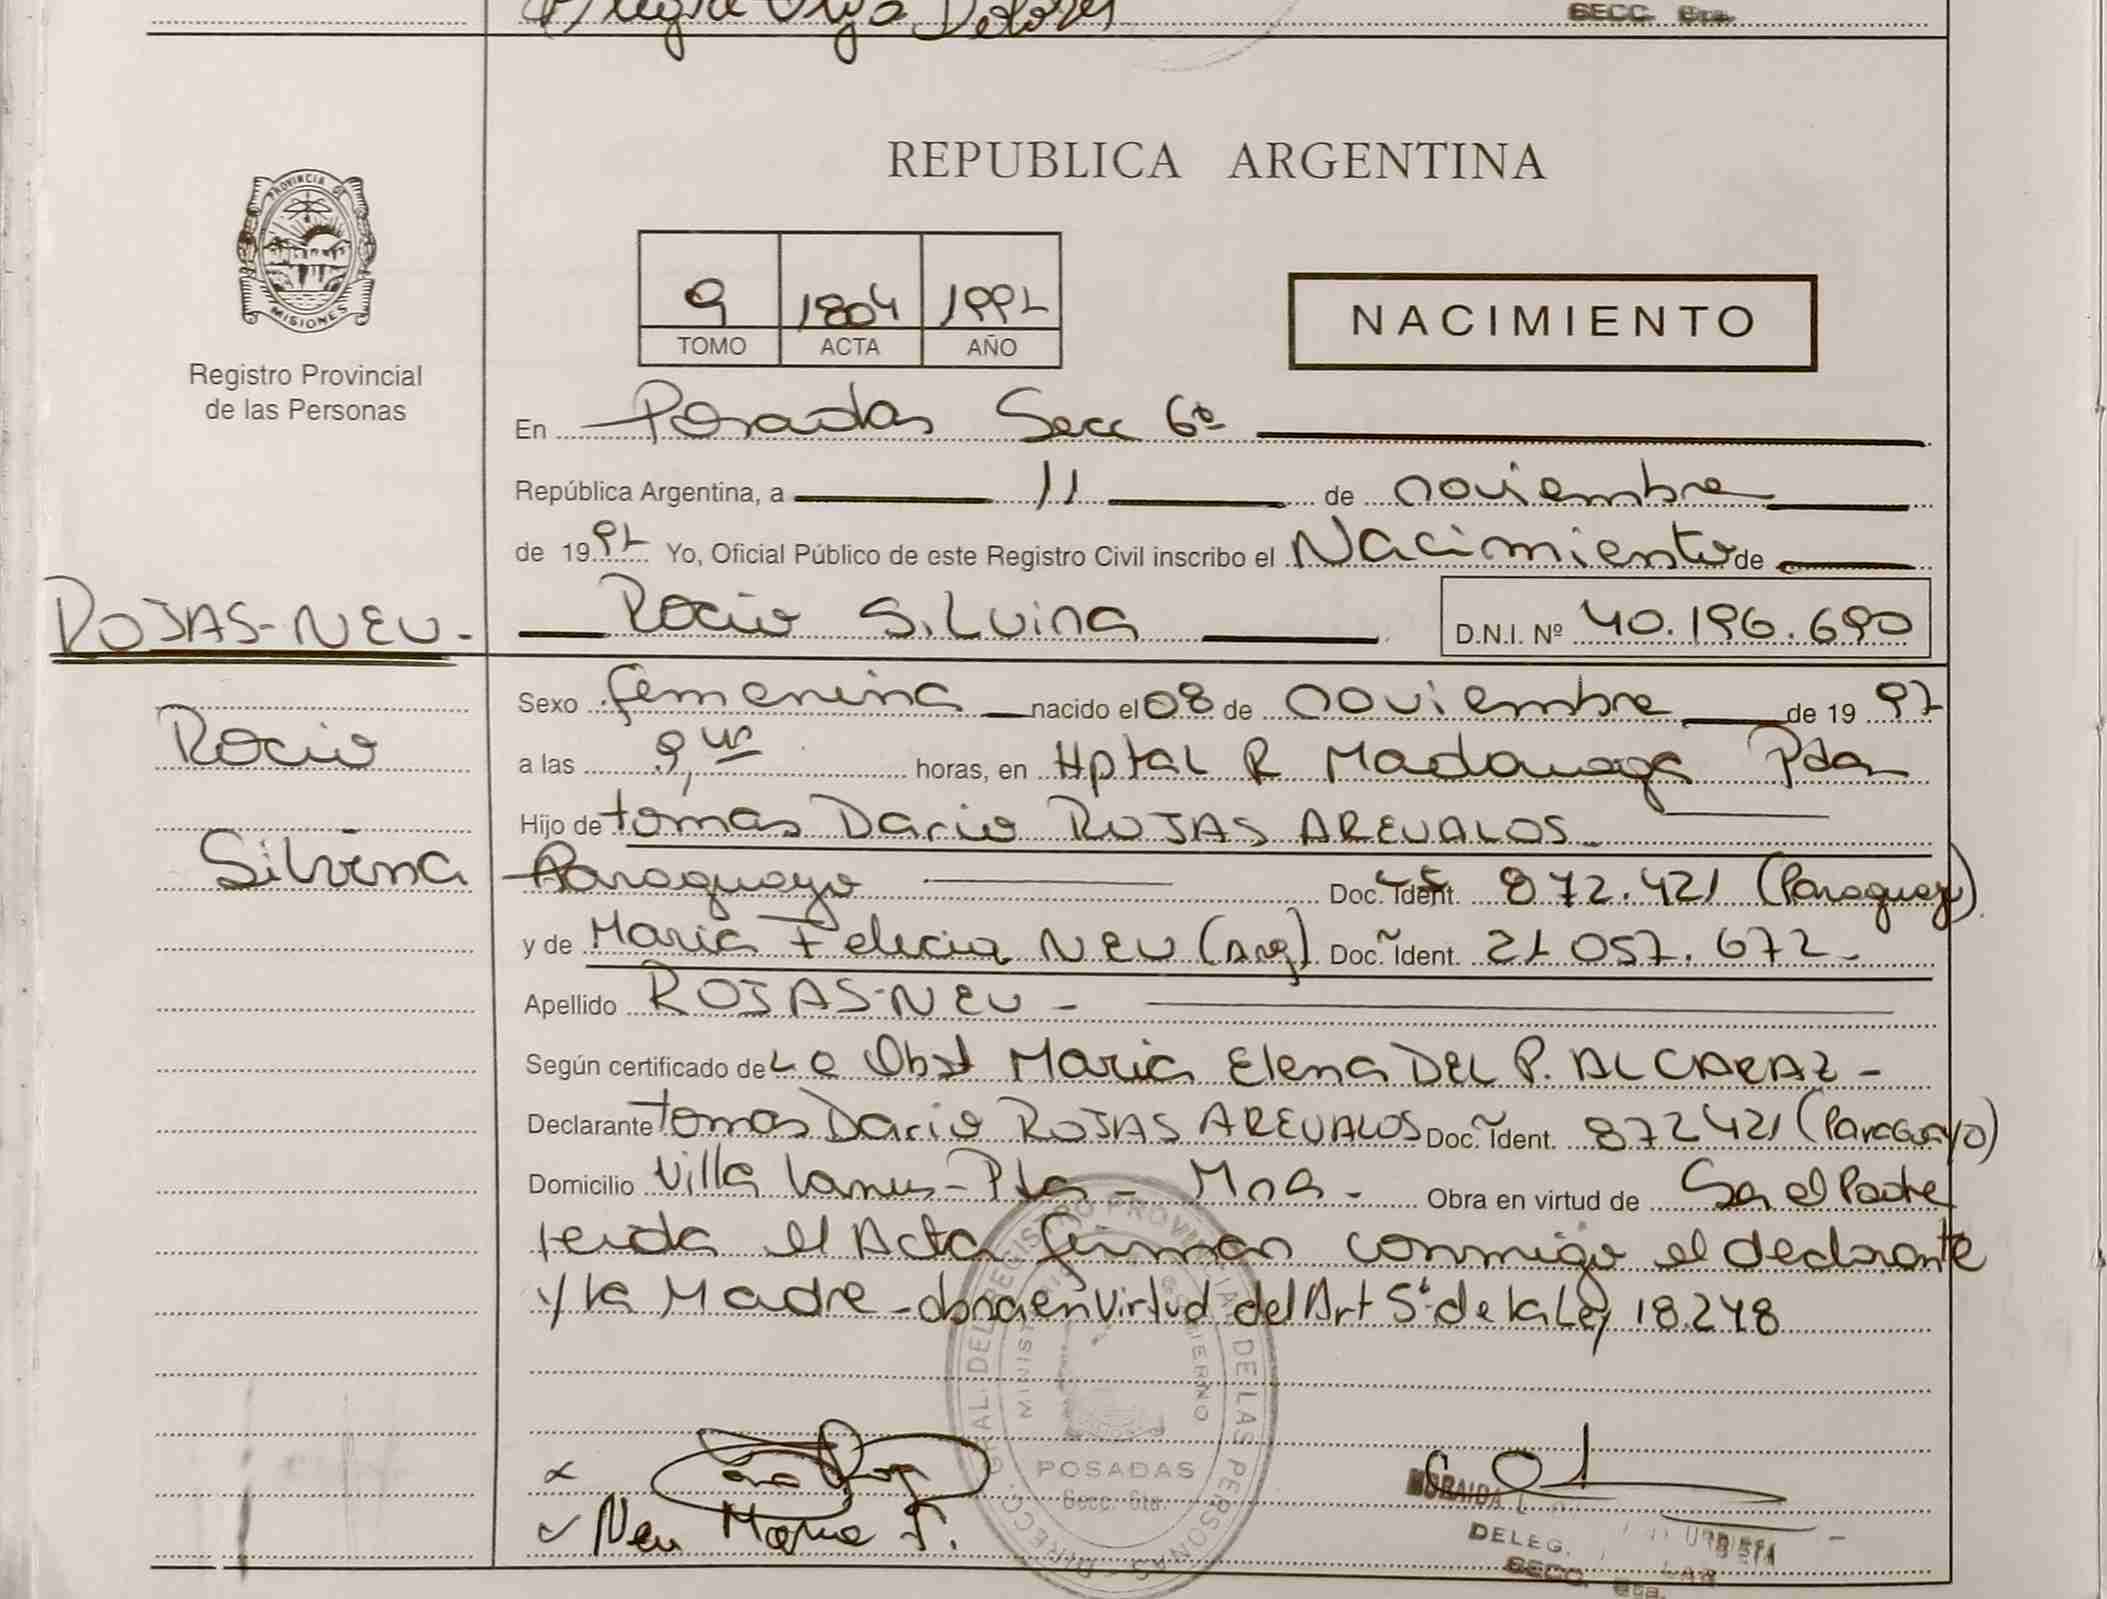 Dolores
SECC. 6ta.
REPUBLICA ARGENTINA
PROVINCIA DE
MISIONES
Registro Provincial
de las Personas
9 1804 1997
TOMO ACTA AÑO
NACIMIENTO
En Posadas Secc 6ª
República Argentina, a 11 de noviembre
de 1997 Yo, Oficial Público de este Registro Civil inscribo el Nacimiento de
ROJAS-NEU- Rocio Silvina D.N.I. Nº 40.196.690
Sexo femenina nacido el 08 de noviembre de 1997
Rocio
a las 9, horas, en Hptal R Madariaga Pdas
Hijo de Tomas Dario ROJAS AREVALOS
Silvina
Paraguayo Doc. Ident. 872.421 (Paraguay)
y de Maria Felicia NEU (Arg) Doc. Ident. 21 057.672-
Apellido ROJAS-NEU-
Según certificado de La Obst Maria Elena DEL P. ALCARAZ-
Declarante Tomas Dario ROJAS AREVALOS Doc. Ident. 872421 (Paraguayo)
Domicilio Villa Lanus-Pdas- Mnes- Obra en virtud de Ser el Padre
leida el Acta firman conmigo el declarante
y la Madre-obra en virtud del Art 5º de la Ley 18.248
DIRECC. GRAL. DEL REGISTRO PROVINCIAL DE LAS PERSONAS
POSADAS
Secc. 6ta.
Neu Maria F.
DELEG.
SECC. 6ta.